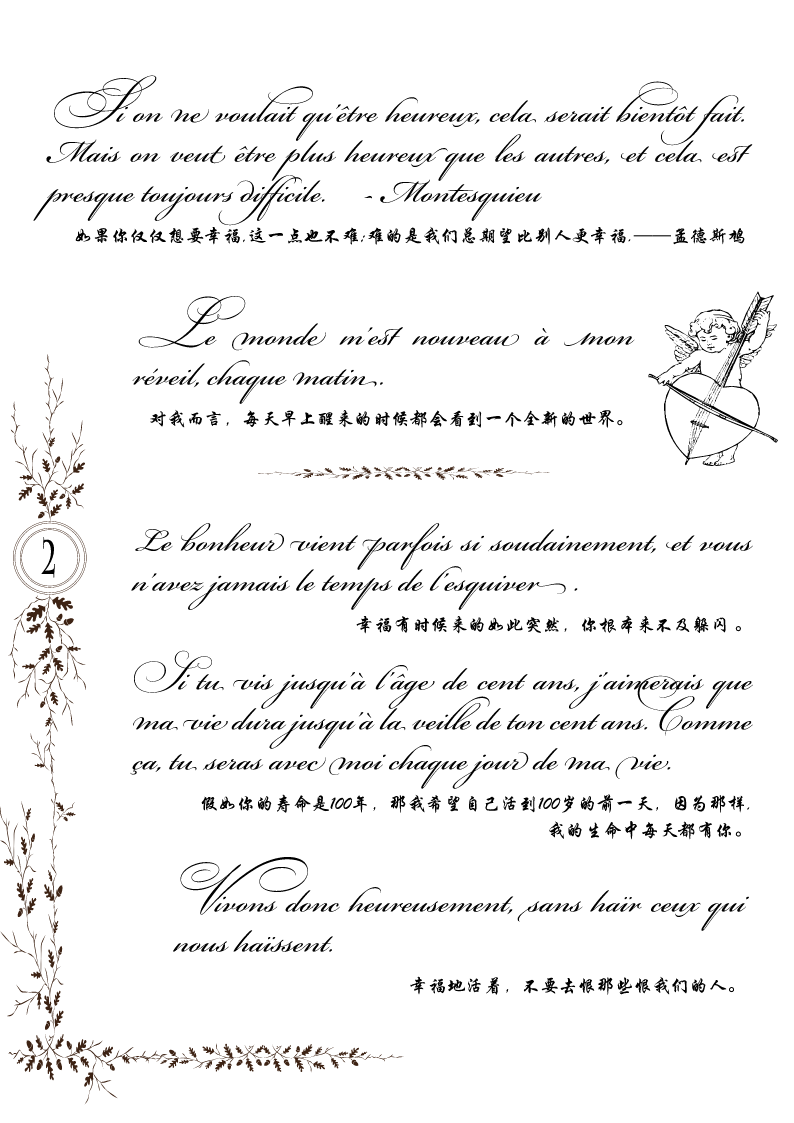 Si on ne voulait qu'être heureux, cela serait bientôt fait.
Mais on veut être plus heureux que les autres, et cela est
presque toujours difficile. - Montesquieu
如果你仅仅想要幸福,这一点也不难;难的是我们总期望比别人更幸福.——孟德斯鸠
Le monde m'est nouveau à mon
réveil, chaque matin.
对我而言，每天早上醒来的时候都会看到一个全新的世界。
2
Le bonheur vient parfois si soudainement, et vous
n'avez jamais le temps de l'esquiver.
幸福有时候来的如此突然，你根本来不及躲闪。
Si tu vis jusqu'à l'âge de cent ans, j'aimerais que
ma vie dura jusqu'à la veille de ton cent ans. Comme
ça, tu seras avec moi chaque jour de ma vie.
假如你的寿命是100年，那我希望自己活到100岁的前一天，因为那样,
我的生命中每天都有你。
Vivons donc heureusement, sans haïr ceux qui
nous haïssent.
幸福地活着，不要去恨那些恨我们的人。